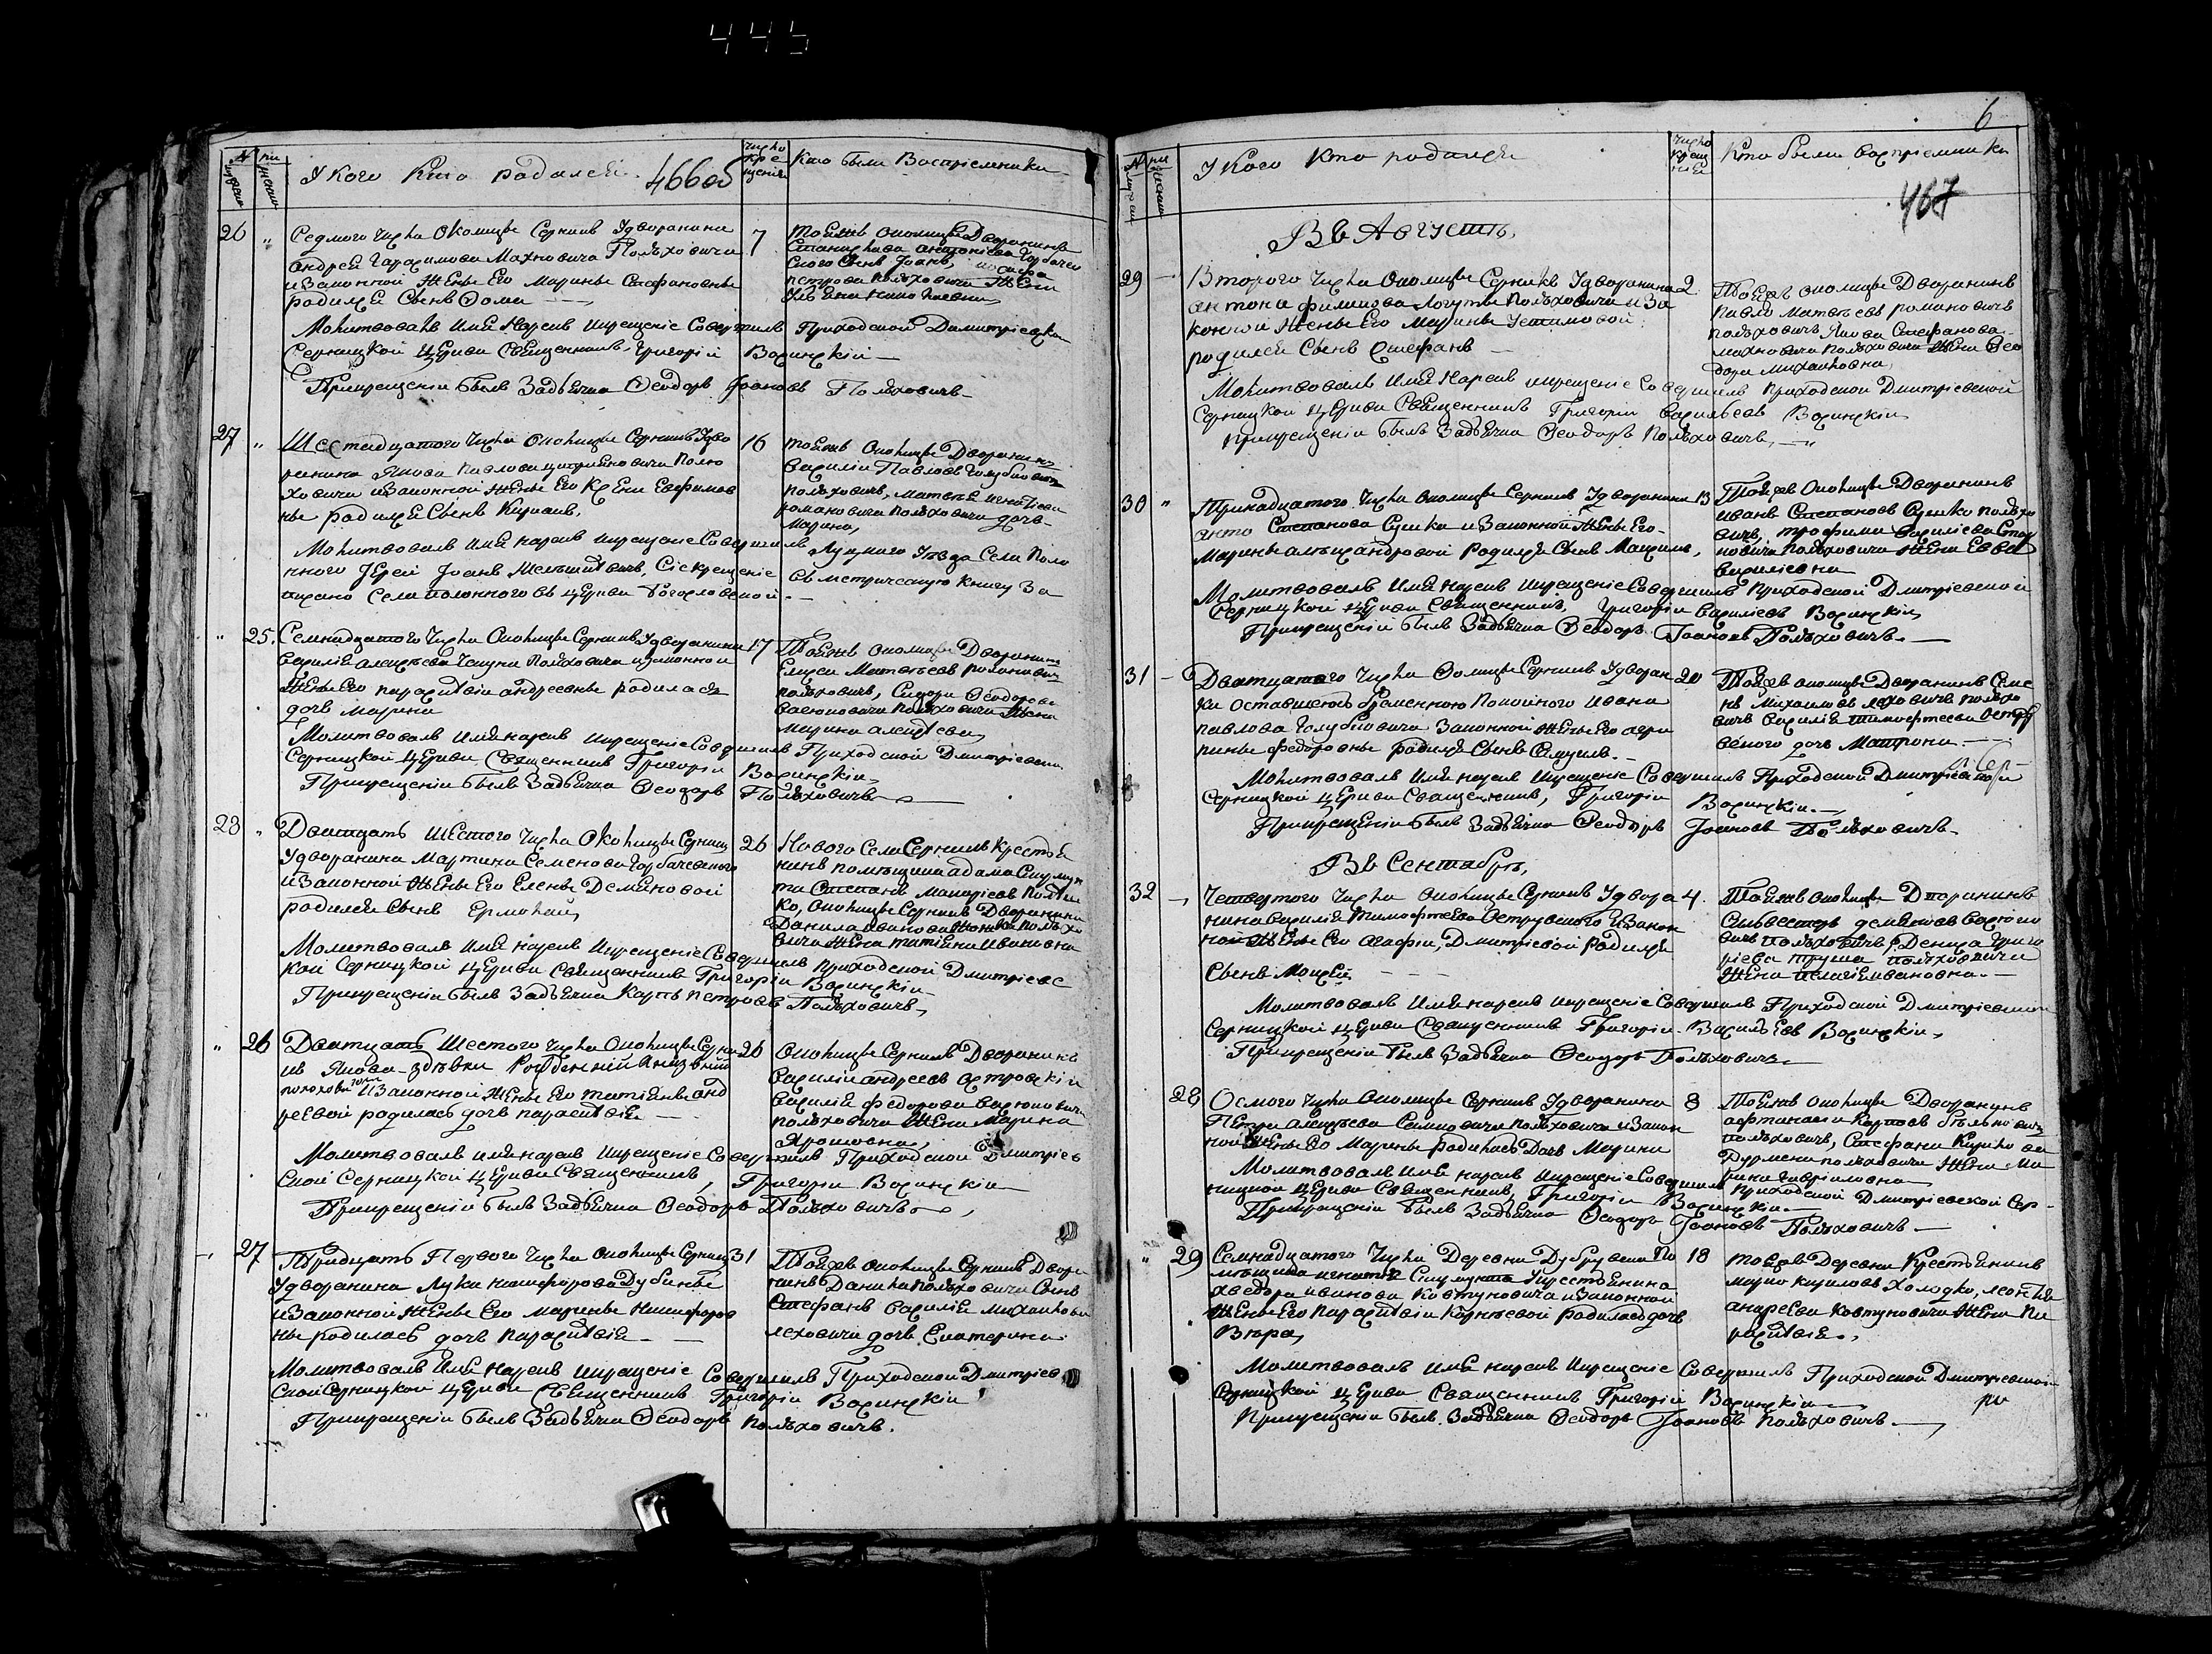 443
6
466об
467
У Кого Кто родился.
число кре щения
Кто были Восприемники
26
Седмого числа Околицы Серник У дворанина
Андрея Герасимова Махновича Полюховича
и Законной жены его Марины Стефановны
родился Сынъ Фома
7
Тоежъ околицы Дворанинъ
Станислава Антонієва Горбачев
ского Сынъ Іоанъ,
петрова полюховича жена
Молитвовалъ имя нарекъ икрещеніе Совершилъ Приходской Димитріевской
Серницкой Церкви Священникъ Григорій
Прикрещеніи былъ Задьячка Феодоръ Іоановъ Полюховичъ
27
Шестнадцатого числа околицы Серникъ Удво
ранина Якова Павлова Полю
ховича изаконной жены его Ксени Евфимов
ны родился Сынъ Кирилъ,
16
тоежъ околицы Дворанинъ
Василій Павловъ Голубовичъ
полюховичъ, Матвея игнатіева
романовича полюховича дочь
Марина,
Молитвовалъ имя нарекъ икрещеніе Совершилъ Луцкого Уезда Села Поло
нного Іерей Іоанъ Сіе крещеніе въ метрическую книгу за
писано Села полонного въ церкви Богословской
25
Семнадцатого числа Околицы Серникъ Удворанина
Василія Алексеева полюховича изаконной
жены его параскевіи андреевны родилась
дочь марина
17
Тоежъ околицы Дворанинъ
Елисей Матвеевъ романович
полюховичъ, Сидора Феодорова
васюковича полюховича жена
Марина алексеева
Молитвовалъ имя нарекъ икрещеніе Совершилъ Приходской Дмитріевской
Серницкой Церкви Священникъ Григорій
Прикрещеніи былъ Задьячка Феодоръ Полюховичъ
28
Двацать шестого числа Околицы Серник
Удворанина Мартина Семенова Горбачевского
изаконной жены его Елены Демяновой
родился Сынъ Ермолай
26
Нового Села Серникъ крестья
нинъ помещика адама
Степанъ Макарієвъ
Околицы Серникъ Дворанина
Данила иванова полюхо
вича жена татіяна ивановна
Молитвовалъ имя нарекъ икрещеніе Совершилъ Приходской Дмитріевс
кой Серницкой Церкви Священникъ Григорій
Прикрещеніи былъ Задьячка Карпъ петровъ Полюховичъ
26
Двацать шестого числа Околицы Серни
ъ Якова
полюхови изаконной жены его татіяны анд
реевой родилась дочь параскевія
26
Околицы Серникъ Дворанинъ
Василій андреевъ островскій
Василія федорова васюковича
полюховича жена Марина
Молитвовалъ имя нарекъ икрещеніе Совершилъ Приходской Дмитріев
ской Серницкой Церкви Священникъ, Григорій
Прикрещеніи былъ Задьячка Феодоръ Полюховичъ
27
Тридцать Первого числа околицы Серник
Удворанина Луки никифорова Дубины
изаконной жены его Марины Никифоров
ны родилась дочь параскевія
31
Тойжъ околицы Серникъ Двора
нинъ Данила Полюховича Сынъ
Стефанъ Василія Михаилова
леховича дочь Екатерина
Молитвовалъ имя нарекъ икрещеніе Совершилъ Приходской Дмитріев
ской Серницкой Церкви Священникъ Григорій
Прикрещеніи былъ Задьячка Феодоръ полюховичъ.
У Кого Кто родился
число креще нія
Кто были восприемники
Въ Августе,
29
Второго числа Околицы Серникъ Удворанина
антона филипова Логуты полюховича иЗа
конной жены его Марины Устимовой
родился Сынъ Стефанъ
2
Тойжъ околицы Дворанинъ
Павло Матвеевъ романовичъ
полюховичъ Якова Стефанова
махновича полюховича жена Фео
дора Михайловна,
Молитвовалъ имя нарекъ икрещеніе Совершилъ приходской Дмитріевской
Серницкой Церкви Священникъ Григорій Васильевъ
прикрещеніи былъ Задьячка Феодоръ Полюховичъ
30
Тринадцатого числа околицы Серникъ Удворанина
Степанова Сушка изаконной жены его
Марины александровой родился Сынъ Максимъ,
13
Тойжъ околицы Дворанинъ
Иванъ Степановъ Сушко полюхо
вичъ, трофима василіева
новича полюховича жена Евва
василіевна
Молитвовалъ имя нарекъ икрещеніе Совершилъ Приходской Дмитріевской
Серницкой Церкви Священникъ, Григорій Василіевъ
Прикрещеніи былъ Задьячка Феодоръ Іоановъ Полюховичъ.
31
Двацатого числа Околицы Серникъ Удворан
ки оставшеюсь беременною Покойного Ивана
павлова Голубовича Законной жены его агри
пины федоровны родился Сынъ Самуилъ.
20
Тойжъ околицы Дворанинъ Семе
нъ Михаиловъ леховичъ полюхо
вичъ Василія тимофтеева остров
ского дочь Матрона.
Молитвовалъ имя нарекъ икрещеніе Совершилъ Приходской Дмитріевской
Серницкой Церкви Священникъ, Григорій
Прикрещеніи былъ Задьячка Феодоръ Іоановъ Полюховичъ
Въ Сентабре,
32
Четвертого числа околицы Серникъ Удвора
нина василія тимофтеева островского изакон
ной жены его агафіи, Дмитріевой родился
Сынъ Моисей
4.
Тоежъ околицы Дворанинъ
Сильвестръ демяновъ васюко
вичъ полюховичъ, Дениса григо
ріева полюховича
жена пелагія ивановна.
Молитвовалъ имя нарекъ икрещеніе Совершилъ Приходской Дмитріевской
Серницкой Церкви Священникъ Григорій Васильевъ
Прикрещеніи былъ Задьячка Феодоръ Полюховичъ
28
Осмого числа Околицы Серникъ Удворанина
Петра алексеева полюховича изакон
ной жены его Марины родилась Дочь Марина
8
Тоежъ околицы Дворанинъ
афтанасій Карповъ
полюховичъ, Стефана Кирило ва
полюховича жена Ма
рина гавриловна
Молитвовалъ имя нарекъ икрещеніе Совершилъ Приходской Дмитріевской Сер-
ницкой Церкви Священникъ, Григорій
Прикрещеніи былъ Задьячка Феодоръ Іоановъ Полюховичъ
29
Семнадцатого числа Деревни Дубровска По
мещика игнатія Укрестьянина
хведора иванова Ковтуновича изаконной
жены его Параскевіи Корнеевой родилась дочь
Вера,
18
тоежъ Деревни Крестьянинъ
марко кириловъ Холодко, леонтія
андреева ковтуновича жена Па
раскевія.
Молитвовалъ имя нарекъ икрещеніе Совершилъ Приходской Дмитріевской
Серницкой Церкви Священникъ Григорій
Прикрещеніи былъ Задьячка Феодоръ Іоановъ полюховичъ.